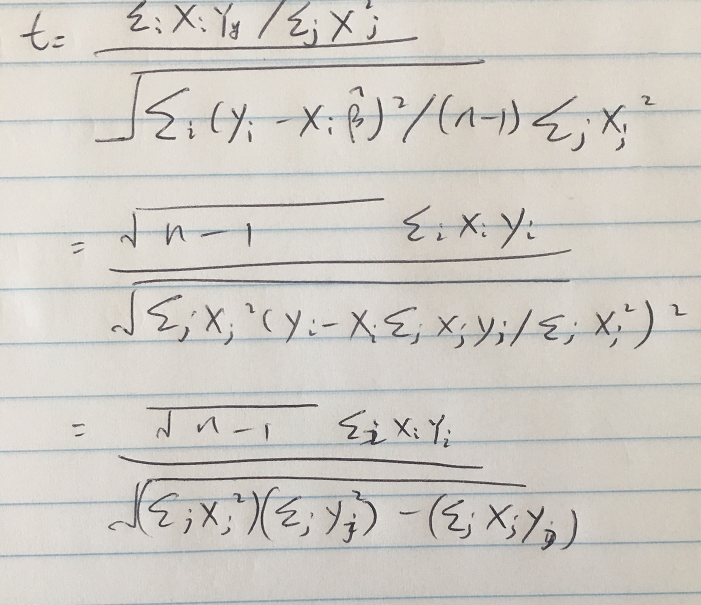 t = Σᵢ XᵢYᵧ / Σⱼ Xⱼ²
√Σᵢ (yᵢ - xᵢ β̂)² / (n-1) Σⱼ Xⱼ²
= √n-1 Σᵢ Xᵢ yᵢ
√Σⱼ Xⱼ² (yᵢ - Xᵢ Σⱼ xⱼ yⱼ / Σⱼ Xⱼ²)²
= √n-1 Σᵢ Xᵢ Yᵢ
√(Σⱼ Xⱼ²)(Σⱼ Yⱼ²) - (Σⱼ XⱼYⱼ)